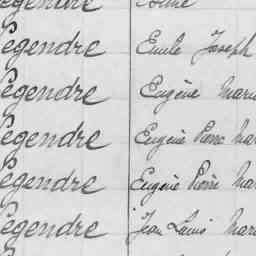 Legendre
Legendre Emile Joseph
Legendre Eugène Marie
Legendre Eugène Pierre Mar
Legendre Eugène Pierre Ma
Legendre Jean Louis Mar